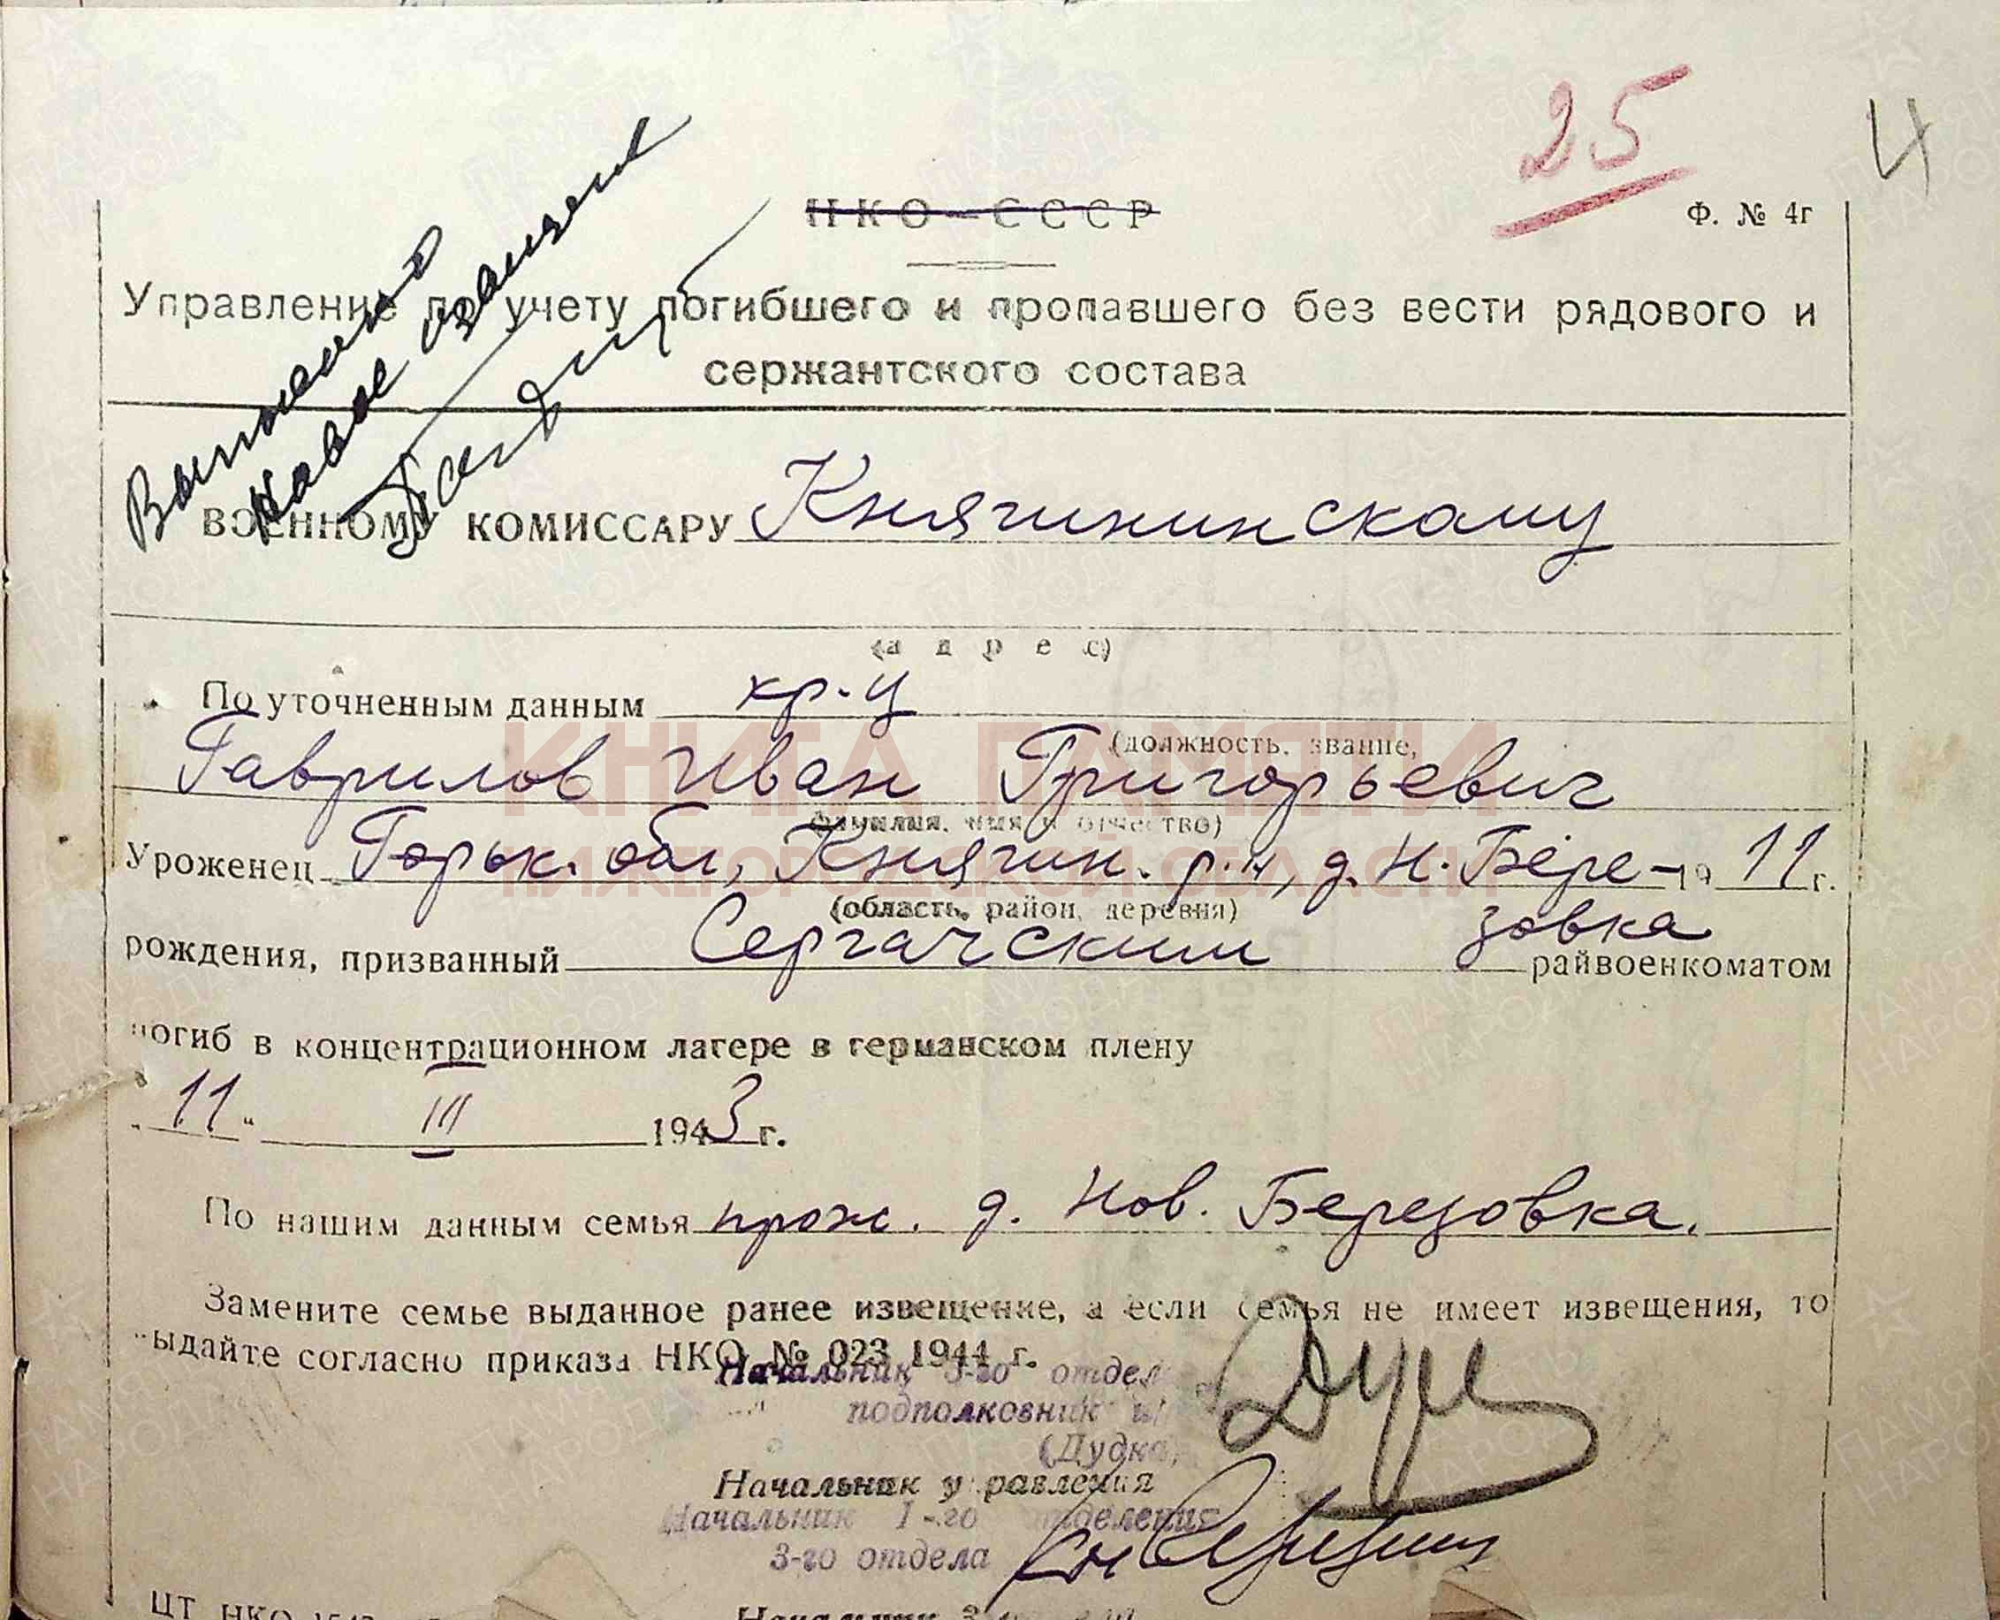 25
4
НКО—СССР
Ф. № 4г
Управление по учету погибшего и пропавшего без вести рядового и
сержантского состава
новое
ВОЕННОМУ КОМИССАРУ Княгининскому
(адрес)
По уточненным данным кр-ц
(должность, звание,
Гаврилов Иван Григорьевич
фамилия, имя и отчество)
Уроженец Горьк. обл, Княгин. р-н, д. Н. Бере- 19 11 г.
(область, район, деревня)
зовка
рождения, призванный Сергачским райвоенкоматом
погиб в концентрационном лагере в германском плену
„ 11 “ III 1943 г.
По нашим данным семья прож. д. Нов. Березовка.
Замените семье выданное ранее извещение, а если семья не имеет извещения, то
выдайте согласно приказа НКО № 023 1944 г.
Начальник 3-го отдел
подполковник
(Дудка)
Начальник управления
Начальник 1-го отделения
3-го отдела
ЦТ НКО
Начальник 3
КНИГА ПАМЯТИ
НИЖЕГОРОДСКОЙ ОБЛАСТИ
ПАМЯТЬ НАРОДА